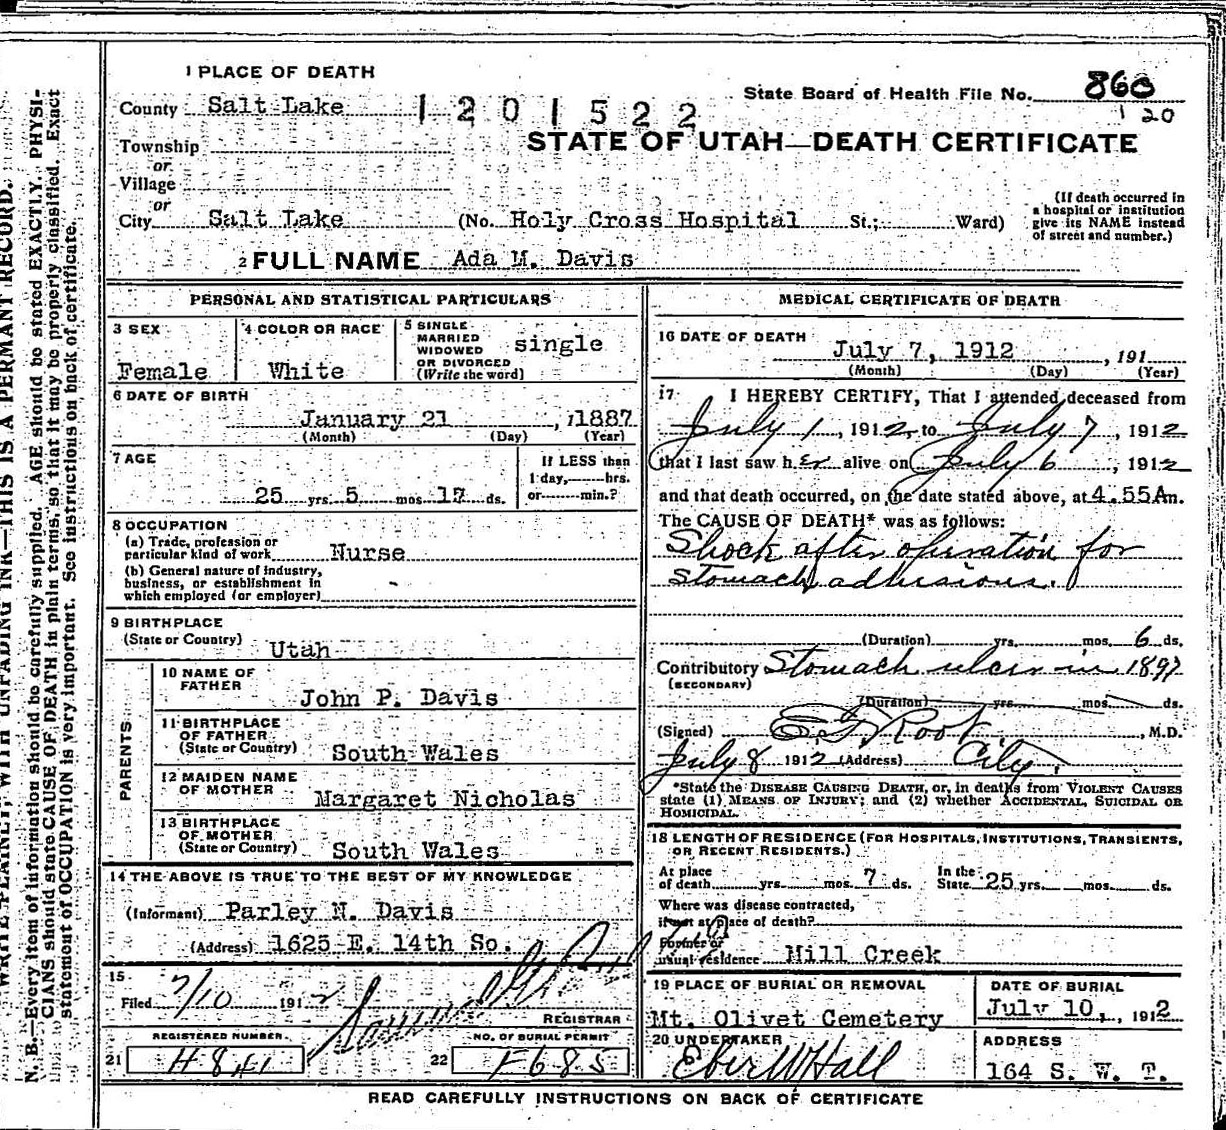 1 PLACE OF DEATH
State Board of Health File No. 860
County Salt Lake 1201522 120
STATE OF UTAH—DEATH CERTIFICATE
Township
or
Village
or
City Salt Lake (No. Holy Cross Hospital St.; Ward)
(If death occurred in
a hospital or institution
give its NAME instead
of street and number.)
2 FULL NAME Ada M. Davis
PERSONAL AND STATISTICAL PARTICULARS
3 SEX Female
4 COLOR OR RACE White
5 SINGLE
MARRIED
WIDOWED
OR DIVORCED
(Write the word) single
6 DATE OF BIRTH
January 21, 1887
(Month) (Day) (Year)
7 AGE
25 yrs. 5 mos. 17 ds.
If LESS than
1 day, hrs.
or min.?
8 OCCUPATION
(a) Trade, profession or
particular kind of work Nurse
(b) General nature of industry,
business, or establishment in
which employed (or employer)
9 BIRTHPLACE
(State or Country) Utah
PARENTS
10 NAME OF
FATHER John P. Davis
11 BIRTHPLACE
OF FATHER
(State or Country) South Wales
12 MAIDEN NAME
OF MOTHER Margaret Nicholas
13 BIRTHPLACE
OF MOTHER
(State or Country) South Wales
14 THE ABOVE IS TRUE TO THE BEST OF MY KNOWLEDGE
(Informant) Parley N. Davis
(Address) 1625 E. 14th So.
15
Filed 7/10 1912
REGISTRAR
REGISTERED NUMBER.
21 H841
NO. OF BURIAL PERMIT
22 F685
MEDICAL CERTIFICATE OF DEATH
16 DATE OF DEATH
July 7, 1912, 191
(Month) (Day) (Year)
17 I HEREBY CERTIFY, That I attended deceased from
July 1, 1912, to July 7, 1912
that I last saw her alive on July 6, 1912
and that death occurred, on the date stated above, at 4.55Am.
The CAUSE OF DEATH* was as follows:
Shock after operation for
stomach adhesions.
(Duration) yrs. mos. 6 ds.
Contributory Stomach ulcer in 1897
(SECONDARY)
(Duration) yrs. mos. ds.
(Signed) Root, M.D.
July 8 1912 (Address) City.
*State the DISEASE CAUSING DEATH, or, in deaths from VIOLENT CAUSES
state (1) MEANS OF INJURY; and (2) whether ACCIDENTAL, SUICIDAL OR
HOMICIDAL.
18 LENGTH OF RESIDENCE (FOR HOSPITALS, INSTITUTIONS, TRANSIENTS,
OR RECENT RESIDENTS.)
At place
of death yrs. mos. 7 ds.
In the
State 25 yrs. mos. ds.
Where was disease contracted,
if not at place of death?
Former or
usual residence Mill Creek
19 PLACE OF BURIAL OR REMOVAL
Mt. Olivet Cemetery
DATE OF BURIAL
July 10, 1912
20 UNDERTAKER
Eber W Hall
ADDRESS
164 S. W. T.
READ CAREFULLY INSTRUCTIONS ON BACK OF CERTIFICATE
WRITE PLAINLY, WITH UNFADING INK—THIS IS A PERMANT RECORD.
N. B.—Every item of information should be carefully supplied. AGE should be stated EXACTLY. PHYSI-
CIANS should state CAUSE OF DEATH in plain terms, so that it may be properly classified. Exact
statement of OCCUPATION is very important. See instructions on back of certificate.